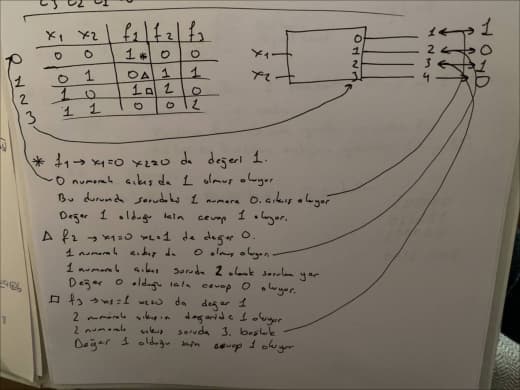 x₁ x₂ f₁ f₂ f₃
0 0 0 1* 0 0
1 0 1 0△ 1 1
2 1 0 1□ 0 0
3 1 1 0 0 1
x₁
x₂
0 1 1
1 2 0
2 3 1
3 4 0
* f₁ → x₁=0 x₂=0 da değeri 1.
0 numaralı çıkış da 1 olmuş oluyor
Bu durumda sorudaki 1 numara 0. çıkış oluyor
Değer 1 olduğu için cevap 1 oluyor.
△ f₂ → x₁=0 x₂=1 de değer 0.
1 numaralı çıkış da 0 olmuş oluyor.
1 numaralı çıkış soruda 2 olarak sorulan yer
Değer 0 olduğu için cevap 0 oluyor.
□ f₃ → x₁=1 x₂=0 da değer 1
2 numaralı çıkışın değeride 1 oluyor
2 numaralı çıkış soruda 3. boşluk
Değer 1 olduğu için cevap 1 oluyor